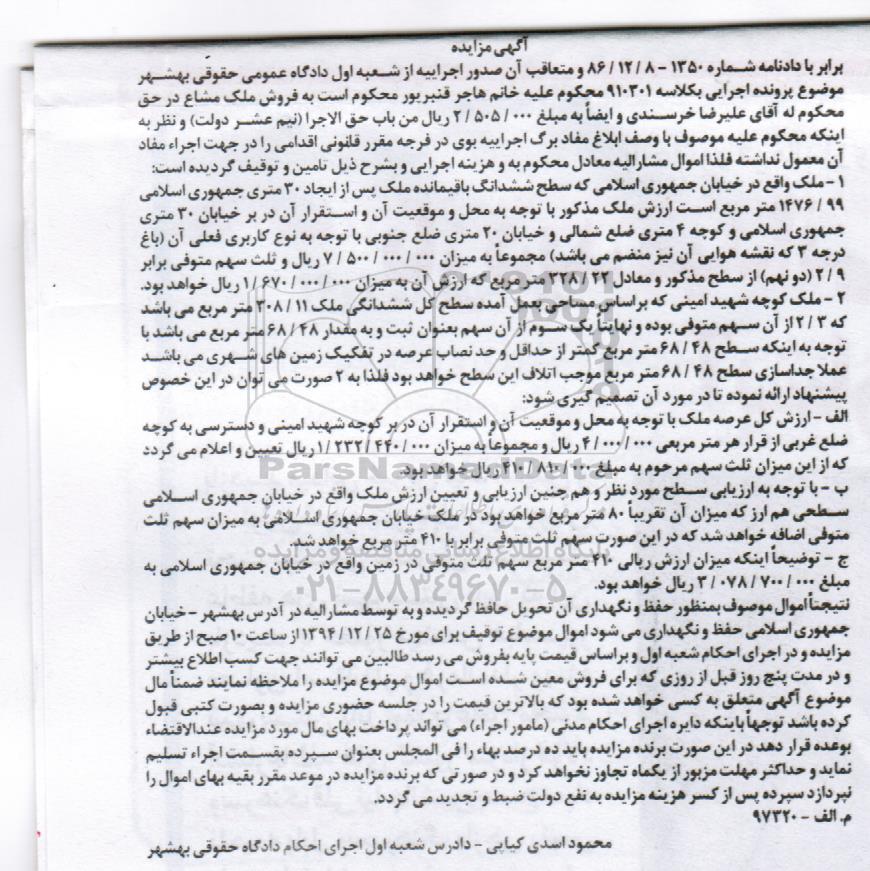 آگهی مزایده
برابر با دادنامه شماره ۱۳۵۰ - ۸ / ۱۲ / ۸۶ و متعاقب آن صدور اجراییه از شعبه اول دادگاه عمومی حقوقی بهشهر
موضوع پرونده اجرایی بکلاسه ۹۱۰۳۰۱ محکوم علیه خانم هاجر قنبرپور محکوم است به فروش ملک مشاع در حق
محکوم له آقای علیرضا خرسندی و ایضاً به مبلغ ۰۰۰ / ۵۰۵ / ۲ ریال من باب حق الاجرا (نیم عشر دولت) و نظر به
اینکه محکوم علیه موصوف با وصف ابلاغ مفاد برگ اجراییه بوی در فرجه مقرر قانونی اقدامی را در جهت اجراء مفاد
آن معمول نداشته فلذا اموال مشارالیه معادل محکوم به و هزینه اجرایی و بشرح ذیل تامین و توقیف گردیده است:
۱ - ملک واقع در خیابان جمهوری اسلامی که سطح ششدانگ باقیمانده ملک پس از ایجاد ۳۰ متری جمهوری اسلامی
۹۹ / ۱۴۷۶ متر مربع است ارزش ملک مذکور با توجه به محل و موقعیت آن و استقرار آن در بر خیابان ۳۰ متری
جمهوری اسلامی و کوچه ۴ متری ضلع شمالی و خیابان ۲۰ متری ضلع جنوبی با توجه به نوع کاربری فعلی آن (باغ
درجه ۳ که نقشه هوایی آن نیز منضم می باشد) مجموعاً به میزان ۰۰۰ / ۰۰۰ / ۵۰۰ / ۷ ریال و ثلث سهم متوفی برابر
۹ / ۲ (دو نهم) از سطح مذکور و معادل ۲۲ / ۳۲۸ متر مربع که ارزش آن به میزان ۰۰۰ / ۰۰۰ / ۶۷۰ / ۱ ریال خواهد بود.
۲ - ملک کوچه شهید امینی که براساس مساحی بعمل آمده سطح کل ششدانگی ملک ۱۱ / ۳۰۸ متر مربع می باشد
که ۳ / ۲ از آن سهم متوفی بوده و نهایتاً یک سوم از آن سهم بعنوان ثبت و به مقدار ۴۸ / ۶۸ متر مربع می باشد با
توجه به اینکه سطح ۴۸ / ۶۸ متر مربع کمتر از حداقل و حد نصاب عرصه در تفکیک زمین های شهری می باشد
عملا جداسازی سطح ۴۸ / ۶۸ متر مربع موجب اتلاف این سطح خواهد بود فلذا به ۲ صورت می توان در این خصوص
پیشنهاد ارائه نموده تا در مورد آن تصمیم گیری شود:
الف - ارزش کل عرصه ملک با توجه به محل و موقعیت آن و استقرار آن در بر کوچه شهید امینی و دسترسی به کوچه
ضلع غربی از قرار هر متر مربعی ۰۰۰ / ۰۰۰ / ۴ ریال و مجموعاً به میزان ۰۰۰ / ۴۴۰ / ۲۳۲ / ۱ ریال تعیین و اعلام می گردد
که از این میزان ثلث سهم مرحوم به مبلغ ۰۰۰ / ۸۱۰ / ۴۱۰ ریال خواهد بود.
ParsNamadData
ب - با توجه به ارزیابی سطح مورد نظر و هم چنین ارزیابی و تعیین ارزش ملک واقع در خیابان جمهوری اسلامی
سطحی هم ارز که میزان آن تقریباً ۸۰ متر مربع خواهد بود در ملک خیابان جمهوری اسلامی به میزان سهم ثلث
متوفی اضافه خواهد شد که در این صورت سهم ثلث متوفی برابر با ۴۱۰ متر مربع خواهد شد.
پایگاه اطلاع رسانی مناقصه و مزایده
ج - توضیحاً اینکه میزان ارزش ریالی ۴۱۰ متر مربع سهم ثلث متوفی در زمین واقع در خیابان جمهوری اسلامی به
مبلغ ۰۰۰ / ۷۰۰ / ۰۷۸ / ۳ ریال خواهد بود.
۰۲۱-۸۸۳۴۹۶۷۰-۵
نتیجتاً اموال موصوف بمنظور حفظ و نگهداری آن تحویل حافظ گردیده و به توسط مشارالیه در آدرس بهشهر - خیابان
جمهوری اسلامی حفظ و نگهداری می شود اموال موضوع توقیف برای مورخ ۲۵ / ۱۲ / ۱۳۹۴ از ساعت ۱۰ صبح از طریق
مزایده و در اجرای احکام شعبه اول و براساس قیمت پایه بفروش می رسد طالبین می توانند جهت کسب اطلاع بیشتر
و در مدت پنج روز قبل از روزی که برای فروش معین شده است اموال موضوع مزایده را ملاحظه نمایند ضمناً مال
موضوع آگهی متعلق به کسی خواهد شده بود که بالاترین قیمت را در جلسه حضوری مزایده و بصورت کتبی قبول
کرده باشد توجهاً باینکه دایره اجرای احکام مدنی (مامور اجراء) می تواند پرداخت بهای مال مورد مزایده عندالاقتضاء
بوعده قرار دهد در این صورت برنده مزایده باید ده درصد بهاء را فی المجلس بعنوان سپرده بقسمت اجراء تسلیم
نماید و حداکثر مهلت مزبور از یکماه تجاوز نخواهد کرد و در صورتی که برنده مزایده در موعد مقرر بقیه بهای اموال را
نپردازد سپرده پس از کسر هزینه مزایده به نفع دولت ضبط و تجدید می گردد.
م. الف - ۹۷۳۲۰
محمود اسدی کیاپی - دادرس شعبه اول اجرای احکام دادگاه حقوقی بهشهر